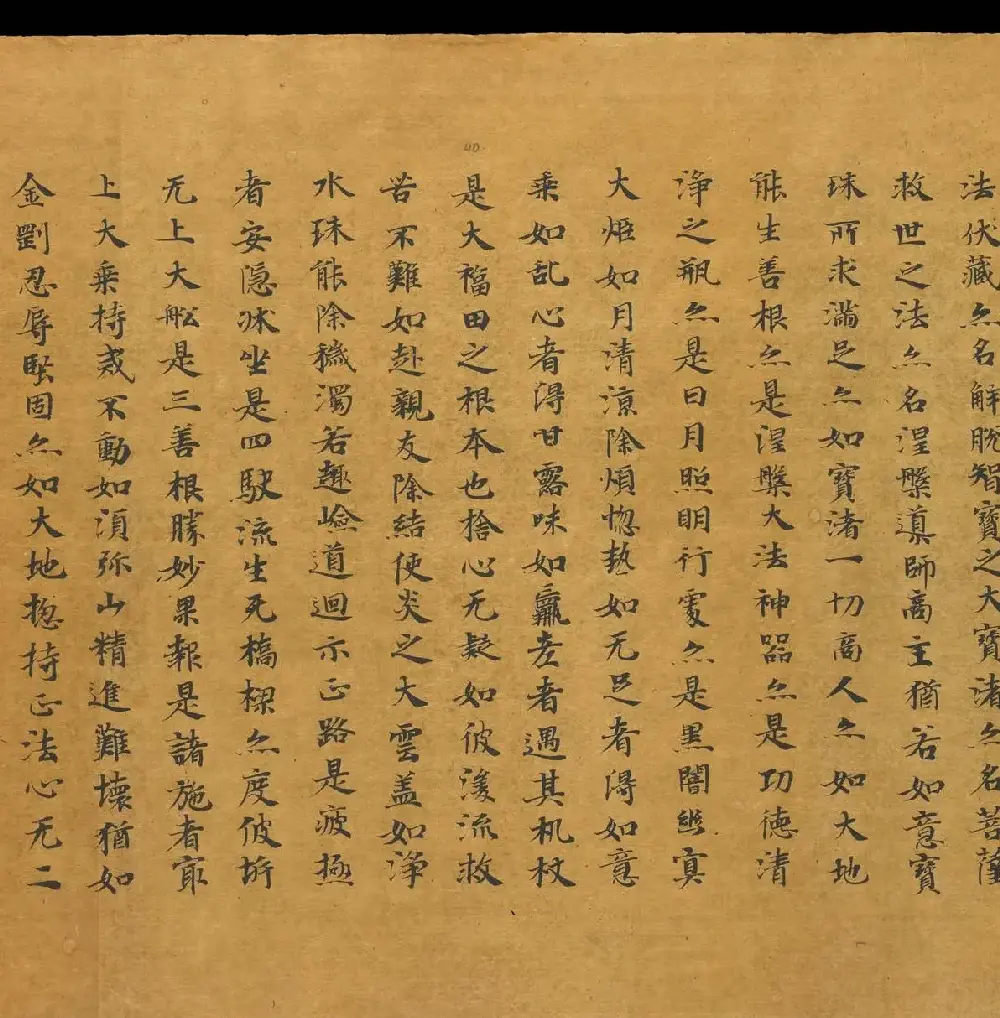 法伏藏亦名解脫智寶之大寶渚亦名菩薩
救世之法亦名涅槃導師商主猶若如意寶
珠所求滿足亦如寶渚一切商人亦如大地
能生善根亦是涅槃大法神器亦是功德清
淨之瓶亦是日月照明行處亦是黑闇幽冥
大炬如月清涼除煩惚熱如无足者得如意
乘如乱心者得甘露味如羸老者遇其机杖
是大福田之根本也捨心无疑如彼漫流救
苦不難如赴親友除結使炎之大雲盖如淨
水珠能除穢濁若趣嶮道迴示正路是疲極
者安隱牀坐是四駛流生死橋樑亦度彼岸
无上大舩是三善根勝妙果報是諸施者冣
上大乘持戒不動如湏弥山精進難壞猶如
金剛忍辱堅固亦如大地揔持正法心无二